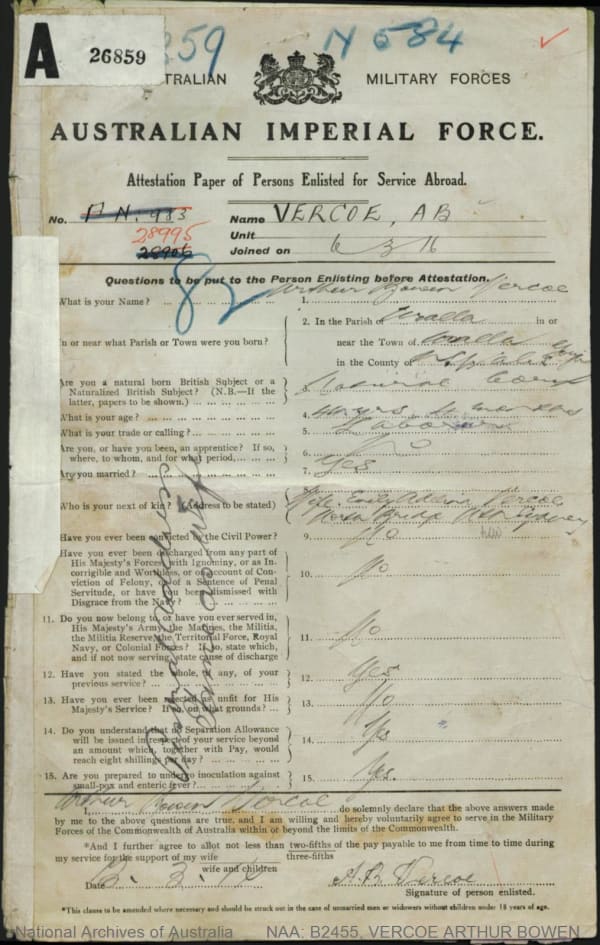 A 26859
859 N 584
AUSTRALIAN MILITARY FORCES
AUSTRALIAN IMPERIAL FORCE.
Attestation Paper of Persons Enlisted for Service Abroad.
No. Name VERCOE, AB
28995 Unit
Joined on 6 3 16
Questions to be put to the Person Enlisting before Attestation.
What is your Name? 1. Arthur Bowen Vercoe
2. In the Parish of Uralla in or
In or near what Parish or Town were you born? near the Town of Uralla
in the County of
Are you a natural born British Subject or a
Naturalized British Subject? (N.B.—If the 3. Natural Born
latter, papers to be shown.)
What is your age? 4.
What is your trade or calling? 5. Labourer
Are you, or have you been, an apprentice? If so,
where, to whom, and for what period, 6. No
Are you married? 7. Yes
Who is your next of kin? (Address to be stated) 8. Wife Emily Vercoe
North Bridge Nth Sydney
NSW
Have you ever been convicted by the Civil Power? 9. No
Have you ever been discharged from any part of
His Majesty's Forces with Ignominy, or as In-
corrigible and Worthless, or on account of Con-
viction of Felony, or of a Sentence of Penal 10. No
Servitude, or have you been dismissed with
Disgrace from the Navy?
11. Do you now belong to, or have you ever served in,
His Majesty's Army, the Marines, the Militia,
the Militia Reserve, the Territorial Force, Royal 11. No
Navy, or Colonial Forces? If so, state which,
and if not now serving, state cause of discharge
12. Have you stated the whole, if any, of your
previous service? 12. Yes
13. Have you ever been rejected as unfit for His
Majesty's Service? If so, on what grounds? 13. No
14. Do you understand that no Separation Allowance
will be issued in respect of your service beyond
an amount which together with Pay, would 14. Yes
reach eight shillings per day?
15. Are you prepared to undergo inoculation against
small-pox and enteric fever? 15. Yes.
I Arthur Bowen Vercoe do solemnly declare that the above answers made
by me to the above questions are true, and I am willing and hereby voluntarily agree to serve in the Military
Forces of the Commonwealth of Australia within or beyond the limits of the Commonwealth.
*And I further agree to allot not less than two-fifths of the pay payable to me from time to time during
my service for the support of my wife three-fifths
wife and children
Date 6. 3. 16 A B Vercoe
Signature of person enlisted.
*This clause to be amended where necessary and should be struck out in the case of unmarried men or widowers without children under 18 years of age.
National Archives of Australia NAA: B2455, VERCOE ARTHUR BOWEN